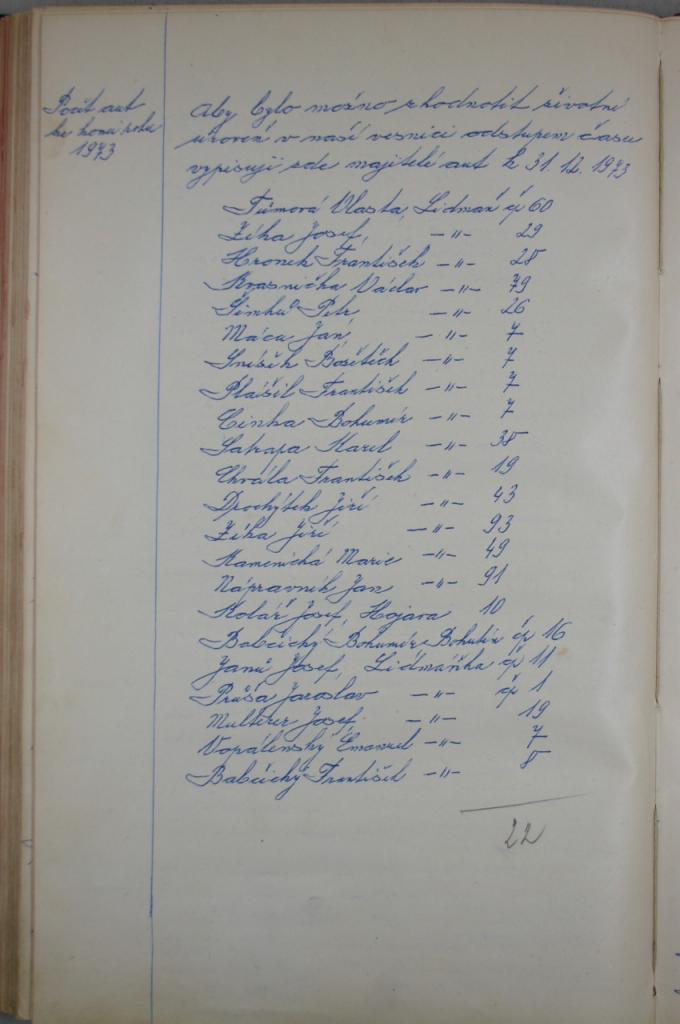 Počet aut
ke konci roku
1973
Aby bylo možno zhodnotit životní
úroveň v naší vesnici odstupem času
vypisuji zde majitelé aut k 31. 12. 1973
Tůmová Vlasta, Lidmaň čp 60
Zíka Josef, —"— 29
Hronek František —"— 28
Krasnička Václav —"— 79
Šimků Petr —"— 26
Máca Jan, —"— 7
—"— 7
Plášil František —"— 7
Cinka Bohumír —"— 7
Satrapa Karel —"— 38
Chvála František —"— 19
Jiří —"— 43
Zíka Jiří —"— 93
Kamenická Marie —"— 49
Nápravník Jan —"— 91
Kolář Josef, Hojava 10
Babčický Bohumír Bohutín čp 16
Janů Josef, Lidmaňka čp 11
Průša Jaroslav —"— čp 1
Multerer Josef —"— 19
Vopálenský Emanuel —"— 7
Babčický František —"— 8
22